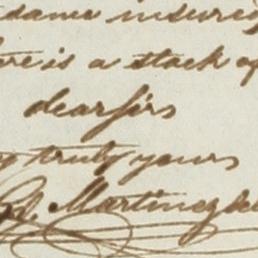 same insured
is a stack of
dear sirs
truly yours
Martinez